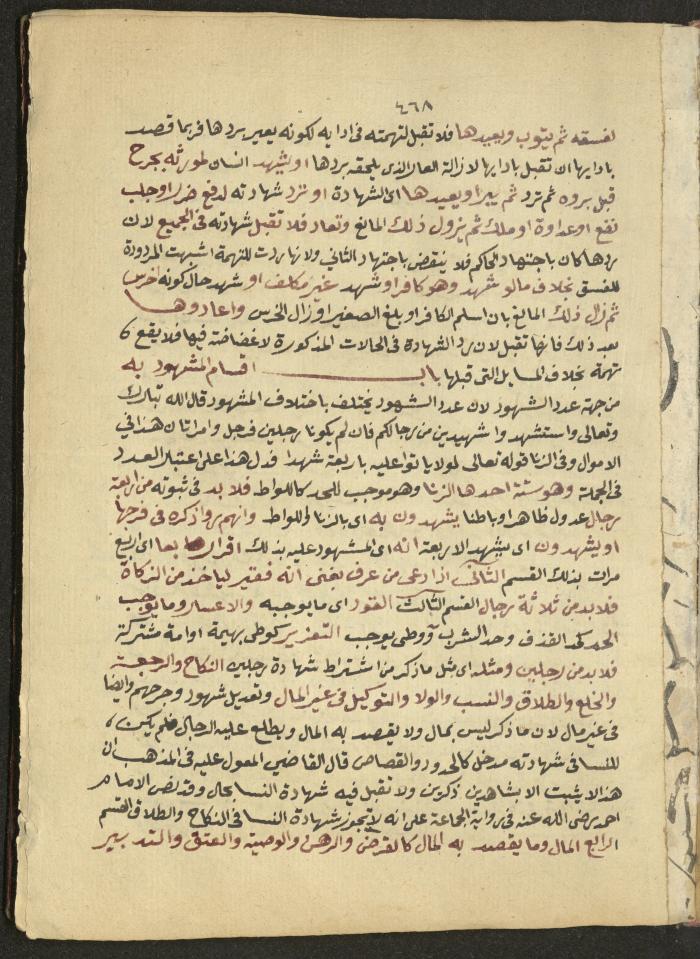 ٤٦٨
لفسقه ثم يتوب ويعيدها فلا تقبل لتهمته في ادايه لكونه يعير بردها فربما قصد
بادايها ان تقبل بادايها لازالة العار الذي يلحقه بردها او يشهد انسان لمورثه بجرح
قبل بروه ثم ترد ثم يبرا ويعيدها اى الشهادة او ترد شهادته لدفع ضرر او جلب
نفع او عداوة او ملك ثم يزول ذلك المانع وتعاد فلا تقبل شهادته في الجميع لان
ردها كان باجتهاد الحاكم فلا ينقض باجتهاد الثاني ولانها ردت للتهمة اشبهت المردودة
للفسق بخلاف مالو شهد وهو كافر او شهد غير مكلف او شهد حال كونه اخرس
ثم زال ذلك المانع بان اسلم الكافر او بلغ الصغير او زال الخرس واعادوها
بعد ذلك فانها تقبل لان رد الشهادة في الحالات المذكورة لا غضاضة فيها فلا يقع
تهمة بخلاف المسايل التي قبلها باب اقسام المشهود به
من جهة عدد الشهود لان عدد الشهود يختلف باختلاف المشهود قال الله تبارك
وتعالى واستشهدوا شهيدين من رجالكم فان لم يكونا رجلين فرجل وامراتان هذا في
الاموال وفي الزنا قوله تعالى لولا ياتوا عليه باربعة شهدا فدل هذا على اعتبار العدد
في الجملة وهو ستة احدها الزنا وهو موجب للحد كاللواط فلا بد في ثبوته من اربعة
رجال عدول ظاهرا وباطنا يشهدون به اى بالزنا واللواط وانهم رواذكره في فرجها
او يشهدون اى يشهد الاربعة انه اى المشهود عليه بذلك اقر اربعا اى اربع
مرات بذلك القسم الثاني اذا ادعى من عرف بغنى انه فقير لياخذ من الزكاة
فلا بد من ثلاثة رجال القسم الثالث القود اى ما يوجبه والاعسار وما يوجب
الحد كحد القذف وحد الشرب ووطى يوجب التعزير كوطى بهيمة اوامة مشتركة
فلا بد من رجلين ومثله اى مثل ما ذكر من اشتراط شهادة رجلين النكاح والرجعة
والخلع والطلاق والنسب والولا والتوكيل في غير المال وتعديل شهود وجرحهم وايصا
في غير مال لان ما ذكر ليس بمال ولا يقصد به المال ويطلع عليه الرجال فلم يكن
للنسا في شهادته مدخل كالحدود والقصاص قال القاضي المعول عليه في المذهب ان
هذا لا يثبت الا بشاهدين ذكرين ولا تقبل فيه شهادة النسا بحال وقد نص الامام
احمد رضي الله عنه في رواية الجماعة على انه لا تجوز شهادة النسا في النكاح والطلاق القسم
الرابع المال وما يقصد به المال كالقرض والرهن والوصية والعتق والتدبير